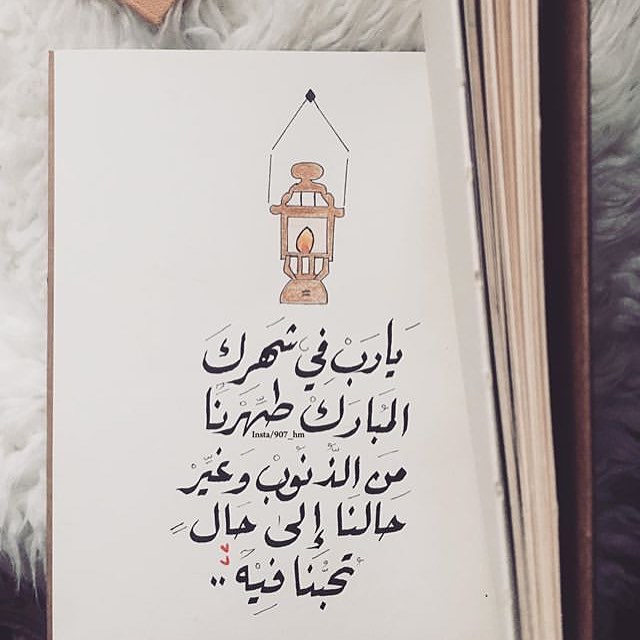 يَارَبْ فِيْ شَهرِكَ
المَبُارَكْ طَهِّرْنَا
Insta/907_hm
مَن الذّنوْبْ وَغيِّرْ
حَالنَا إلىٰ حَالٍ
تحبُّنَا فِيْهَ ..